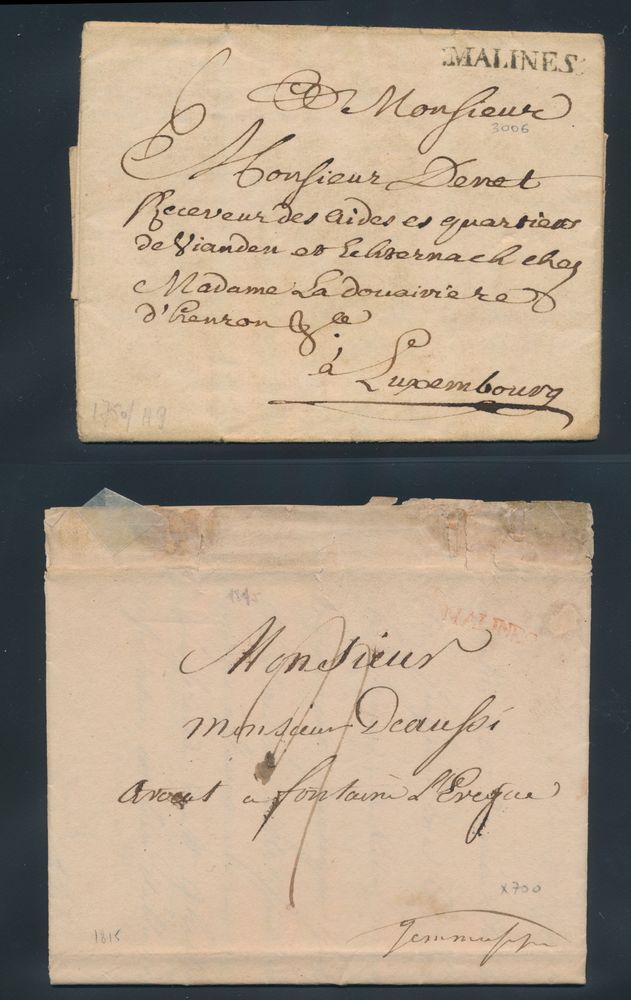 MALINES
A Monsieur
3006
6
Monsieur Denet
Receveur des aides es quartiers
de Vianden et Echternach chez
Madame La douairiere
d'henron &c
à Luxembourg
MALINES
1815
Monsieur
monsieur Deaussi
avocat a fontaine L'Eveque
x700
1815
Jemmappe